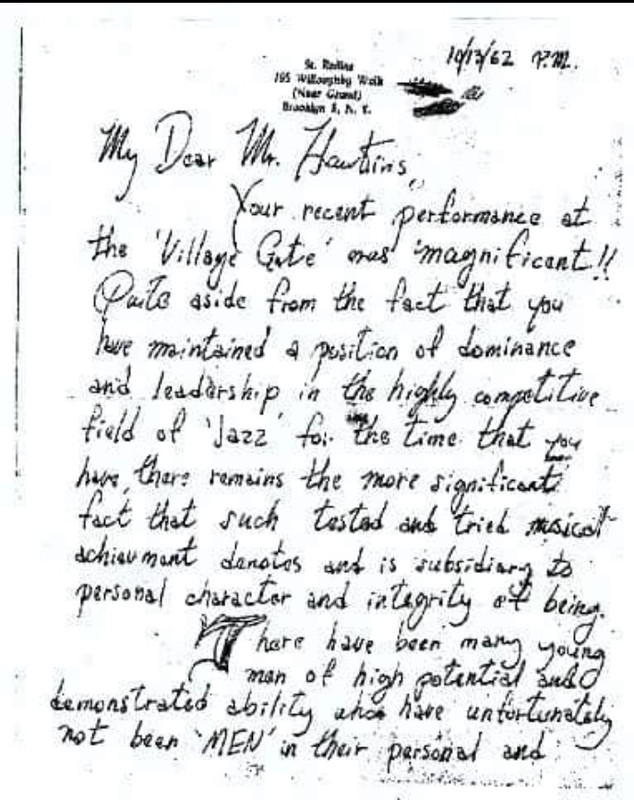 10/13/62 P.M.
195 Willoughby Walk
(Near Grand)
Brooklyn 5, N. Y.
My Dear Mr. Hawkins,
Your recent performance at
the 'Village Gate' was 'magnificent'!!
Quite aside from the fact that you
have maintained a position of dominance
and leadership in the highly competitive
field of 'Jazz' for the time that you
have, there remains the more significant
fact that such tested and tried musical
achievment denotes and is subsidiary to
personal character and integrity of being.
There have been many young
men of high potential and
demonstrated ability who have unfortunately
not been 'MEN' in their personal and